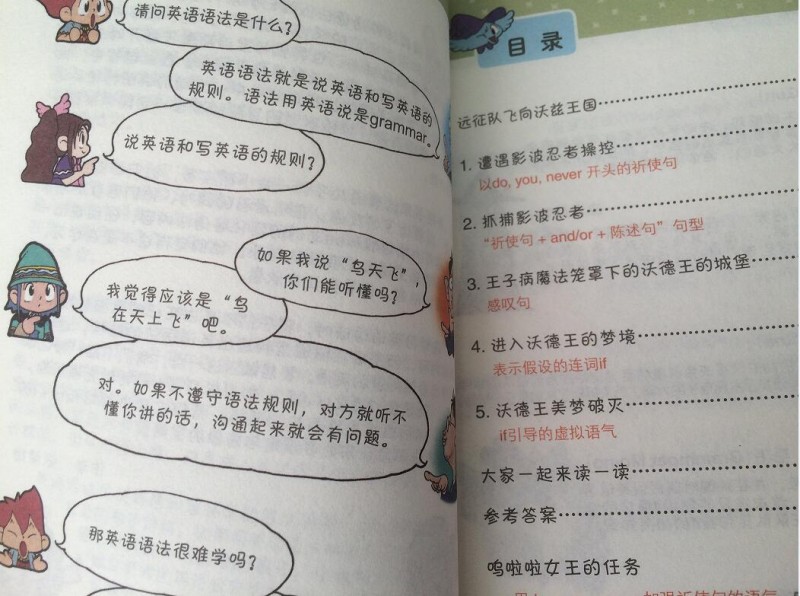 请问英语语法是什么？
英语语法就是说英语和写英语的
规则。语法用英语说是grammar。
说英语和写英语的规则？
如果我说“鸟天飞”，
你们能听懂吗？
我觉得应该是“鸟
在天上飞”吧。
对。如果不遵守语法规则，对方就听不
懂你讲的话，沟通起来就会有问题。
那英语语法很难学吗？
目录
远征队飞向沃兹王国
1. 遭遇影波忍者操控
以do, you, never 开头的祈使句
2. 抓捕影波忍者
“祈使句 + and/or + 陈述句”句型
3. 王子病魔法笼罩下的沃德王的城堡
感叹句
4. 进入沃德王的梦境
表示假设的连词if
5. 沃德王美梦破灭
if引导的虚拟语气
大家一起来读一读
参考答案
呜啦啦女王的任务
加强祈使句的语气